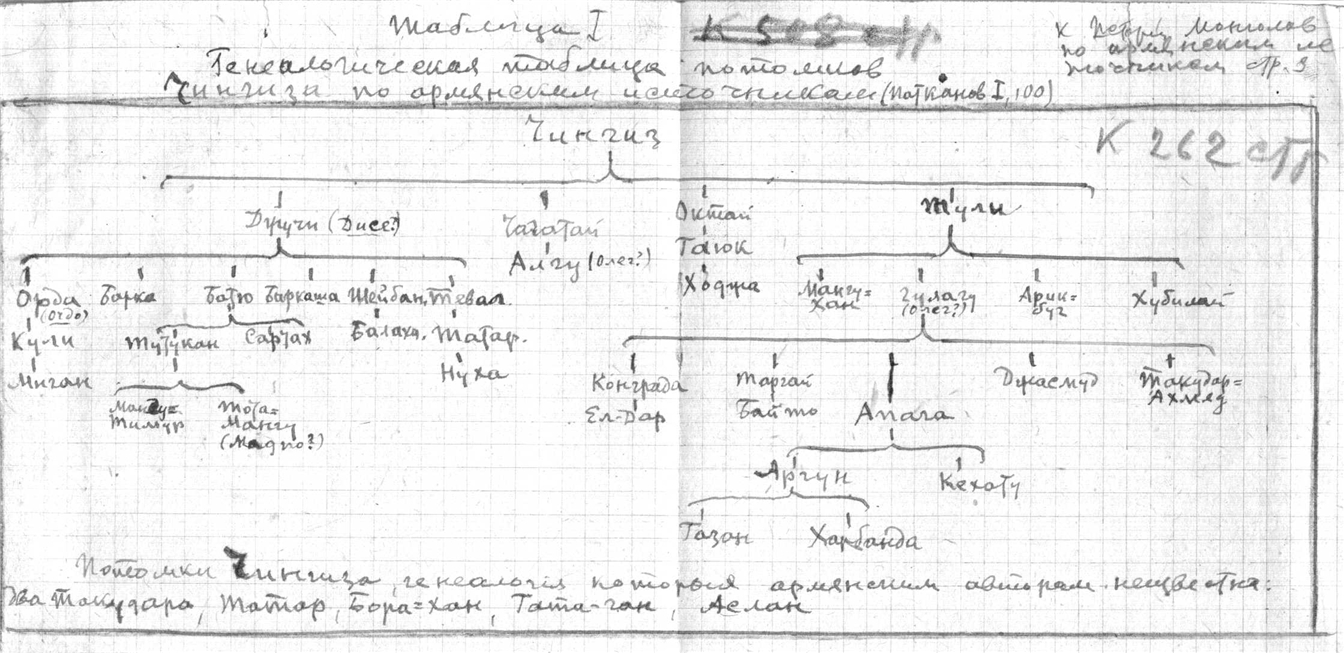 Таблица I
К 508 стр.
К Истор. Монголов
по армянским ис
точникам стр. 3
Генеалогическая таблица потомков
Чингиза по армянским источникам (Патканов I, 100)
Чингиз
К 262 стр
Джучи (Дисе?)
Чагатай
Октай
Тули
Алгу (Олег?)
Гаюк
Ходжа
Орда
(Огдо)
Барка
Батю
Баркаша
Шейбан.
Тевал.
Мангу=
Хан
Гулагу
(Олег?)
Арик-
буг
Хубилай
Кули
Тутукан
Сартах
Балаха.
Татар.
Миган
Нуха
Мангу=
Тимур
Тота=
Мангу
Конграда
Ел-Дар
Таргай
Байто
Апага
Джасмуд
Такудар=
Ахмед
Аргун
Кехату
Газан
Харбанда
Потомки Чингиза, генеалогия которыя армянским авторам неизвестна:
Два такудара, Татар, Бора=хан, Тата-ган, Аслан